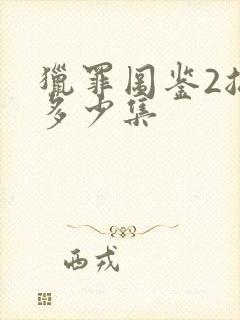 猎罪图鉴2
多少集
西戎